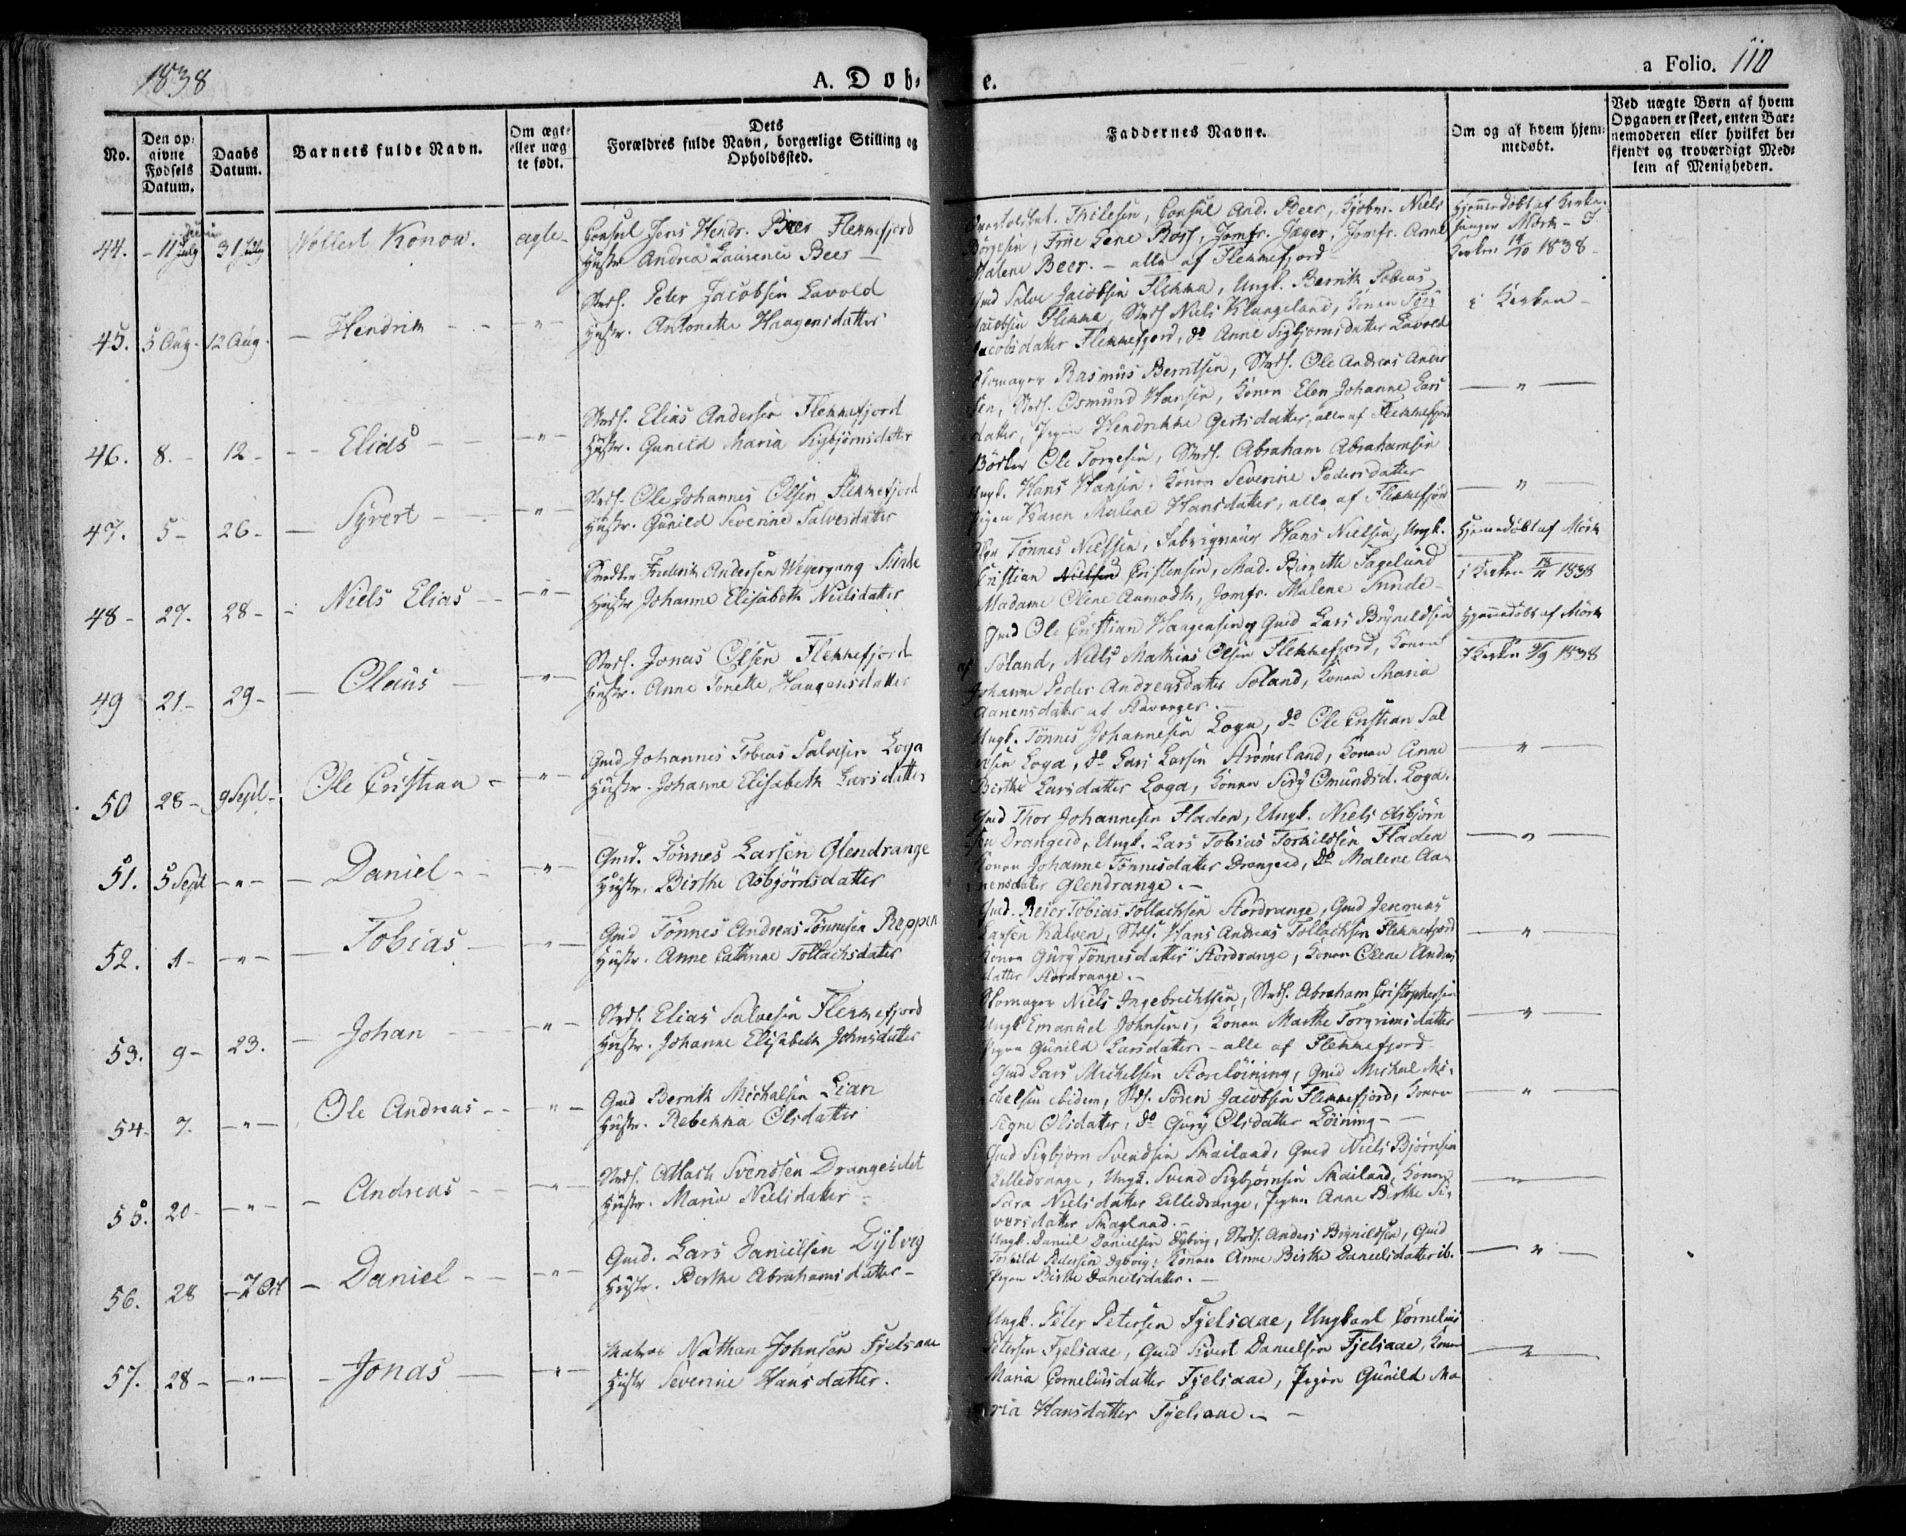 1838
A. Dob-
e.
a Folio. 110
No.
Den op-
givne
Fødsels
Datum.
Daabs
Datum.
Barnets fulde Navn.
Om ægte
eller uæg
te født.
Dets
Forældres fulde Navn, borgerlige Stilling og
Opholdssted.
Faddernes Navne.
Om og af hvem hjem-
medøbt.
Ved uægte Børn af hvem
Opgaven er skeet, enten Bar-
nemoderen eller hvilket be-
kjendt og troværdigt Med-
lem af Menigheden.
44. 11 July 31 July Wollert Konow. ægte
Consul Jens Hendr. Beer Flekkefjord
Hustr. Andrea Laurence Beer
Thilesen, Consul And. Beer, Kjøbm. Niels
Børgesen, Frue Lene Roß, Jomfr. Jæger, Jomfr. Anne
Malene Beer. - alle af Flekkefjord
Hjemmedøbt af Kirke-
sanger Mörk - I
Kirken 14/10 1838
45. 5 Aug. 12 Aug. Hendrik - " -
Strds. Peter Jacobsen Lavold
Hustr. Antonette Haagensdatter
Gmd Salve Jacobsen Flekke, Ungk. Bernth Tobias
Jacobsen Flekke, Strds Niels Klungeland, Konen Siri
Jacobsdatter Flekkefjord, do Anne Sigbjornsdatter Lavold
i Kirken -
46. 8. - 12 - Elias - " -
Strds. Elias Andersen Flekkefjord
Hustr. Gunild Maria Sigbjørnsdatter
Skomager Rasmus Berntsen, Strds. Ole Andreas Ander
sen, Strds. Osmund Hansen, Konen Elen Johanne Lars
datter, Pigen Hendrikke Gertsdatter, alle af Flekkefjord
- " -
47. 5 - 26 - Syvert - " -
Strds. Ole Johannes Olsen Flekkefjord
Hustr. Gunild Severine Salvesdatter
Bödker Ole Torgesen, Strds. Abraham Abrahamsen
Ungk. Hans Hansen, Konen Severine Pedersdatter
Pigen Karen Malene Hansdatter, alle af Flekkefjord
- " -
48 - 27. 28 - Niels Elias - " -
Frederik Andersen Weyergang Sunde
Hustr Johanne Elisabeth Nielsdatter
Tønnes Nielsen, Hans Nielsen, Ungk.
Cristian Nielsen Cristensen, Mad. Birgitte Fagelund
Madame Olene Aamodt, Jomfr. Malene Sunde -
Hjemmedøbt af Mörk
i Kirken 1838
49 21 - 29 - Olaus - " -
Strds. Jonas Olsen Flekkefjord
Hustr. Anne Tonette Haagensdatter
Gmd Ole Cristian Haagensen og Gmd Lars Brynildsen
af Soland, Niels Mathias Olsen Flekkefjord, Konen
Johanne Peder Andreasdatter Soland, Konen Maria
Aanensdatter af Stavanger. -
Hjemmedøbt af Mörk
I Kirken 1838
50 28 - 9 Sept. Ole Cristian - " -
Gmd Johannes Tobias Salvesen Loga
Hustr. Johanne Elisabeth Larsdatter
Ungk. Tønnes Johannesen Loga, do Ole Cristian Sal
vesen Loga, do Lars Larsen Strømsland, Konen Anne
Birthe Larsdatter Loga, Konen Siry Omundsd. Loga.
- " -
51. 5 Sept - " - Daniel - " -
Gmd. Tönnes Larsen Glendrange
Hustr. Birthe Asbjörnsdatter
Gmd Thor Johannesen Fladen, Ungk. Niels Asbjørn
sen Drangeid, Ungk. Lars Tobias Torkildsen Fladen
Konen Johanne Tönnesdatter Drangeid, do Malene Aa-
nensdatter Glendrange. -
- " -
52. 1 - - " - Tobias - " -
Gmd Tønnes Andreas Tönnesen Reppen
Hustr. Anne Cathrine Tollachsdatter
Gmd. Reier Tobias Tollachsen Stordrange, Gmd Jeremias
Larsen Kalven, Strds. Hans Andreas Tollachsen Flekkefjord
Konen Gury Tönnesdatter Stordrange, Konen Olene Andr
datter Stordrange. -
- " -
53. 9 - 23. Johan - " -
Strds. Elias Salvesen Flekkefjord
Hustr. Johanne Elisabeth Johnsdatter
Skomager Niels Ingebrechtsen, Strds. Abraham Cristophersen
Ungk Emanuel Johnsen, Konen Marthe Torgrimsdatter
Pigen Gunild Larsdatter - alle af Flekkefjord
- " -
54 - 7. - " - Ole Andreas - " -
Gmd Bernth Michelsen Lian
Hustr. Rebekka Olsdatter
Gmd Lars Michelsen Storeløining, Gmd Mickel Mi-
chelsen ibidem, Strds. Sören Jacobsen Flekkefjord, Konen
Signe Olsdatter, do Gury Olsdatter Löining -
- " -
55. 20 - - " - Andreas - " -
Strds. Atlach Svendsen Drangeidet
Hustr. Marie Nielsdatter
Gmd Sigbjørn Svendsen Skailand, Gmd Niels Bjørnsen
Lilledrange, Ungk. Svend Sigbjørnsen Skailand, Konen
Sara Nielsdatter Lilledrange, Pigen Anne Birthe Si-
versdatter Skagland. -
- " -
56. 28 - 7 Oct - Daniel - " -
Gmd. Lars Danielsen Dybvig
Hustr. Berthe Abrahamsdatter -
Ungk. Daniel Danielsen Dybvig, Strds. Anders Brynildsen, Gmd
Torkild Pedersen Dybvig, Konen Anne Birthe Danielsdatter ib.
Pigen Birthe Danielsdatter. -
- " -
57. 28 - - " - Jonas - " -
Matros Nathan Johnsen Fjelsaae
Hustr Severine Hansdatter.
Ungk. Peter Petersen Fjelsaae, Ungkarl Cornelius
Petersen Fjelsaae, Gmd Sivert Danielsen Fjelsaae, Konen
Maria Corneliusdatter Fjelsaae, Pigen Gunild Ma
ria Hansdatter Fjelsaae. -
- " -